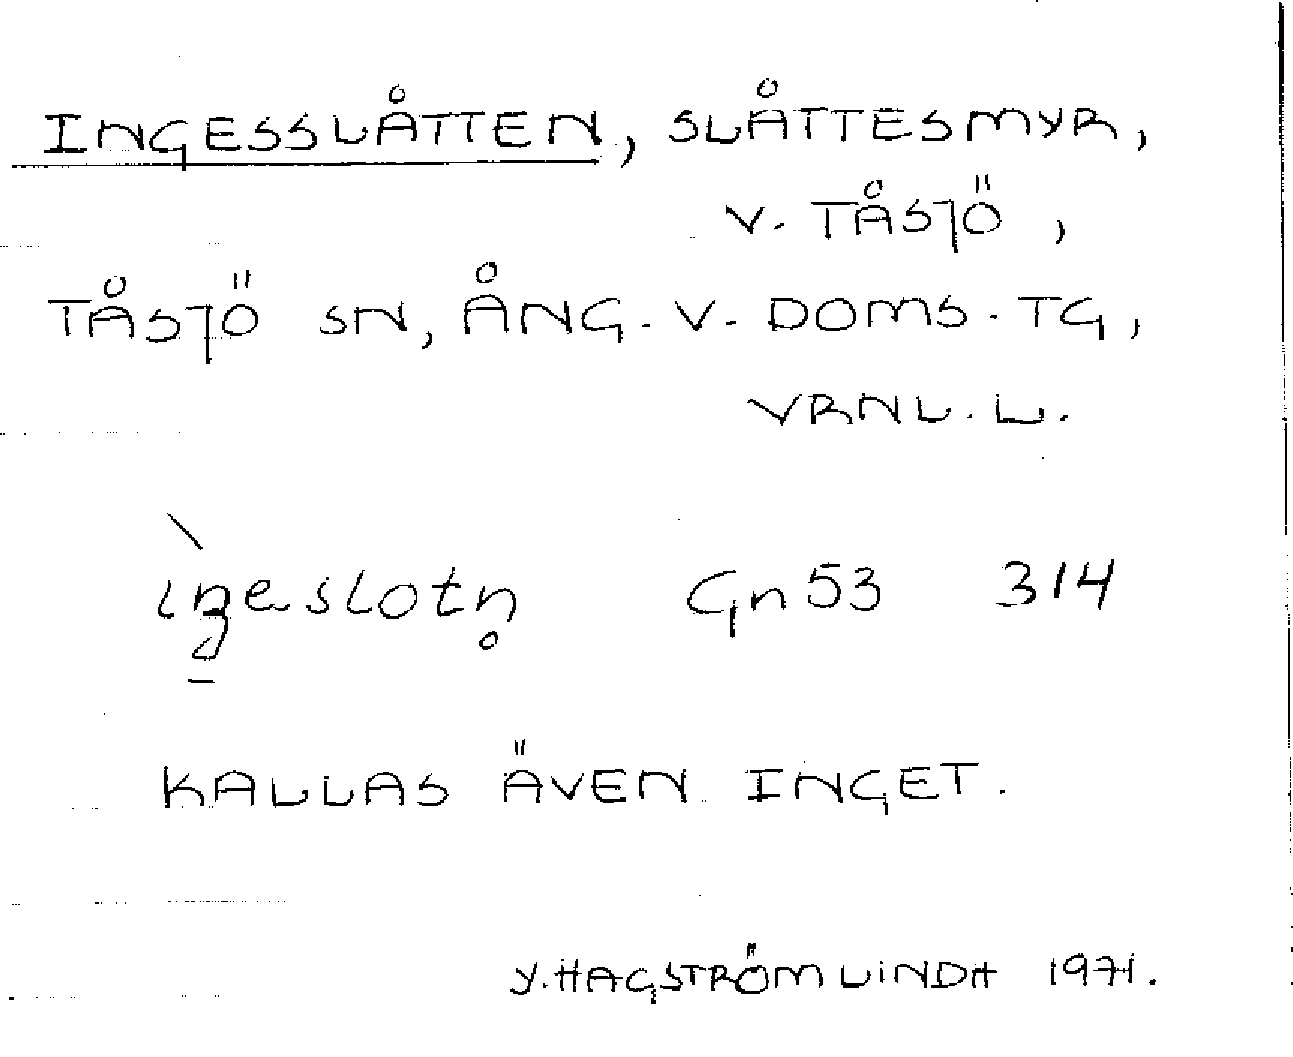 INGESSLÅTTEN, SLÅTTESMYR,
V. TÅSJÖ,
TÅSJÖ SN, ÅNG. V. DOMS. TG,
VRNL. L.
Gn 53 314
KALLAS ÄVEN INGET.
Y. HAGSTRÖM LINDH 1971.